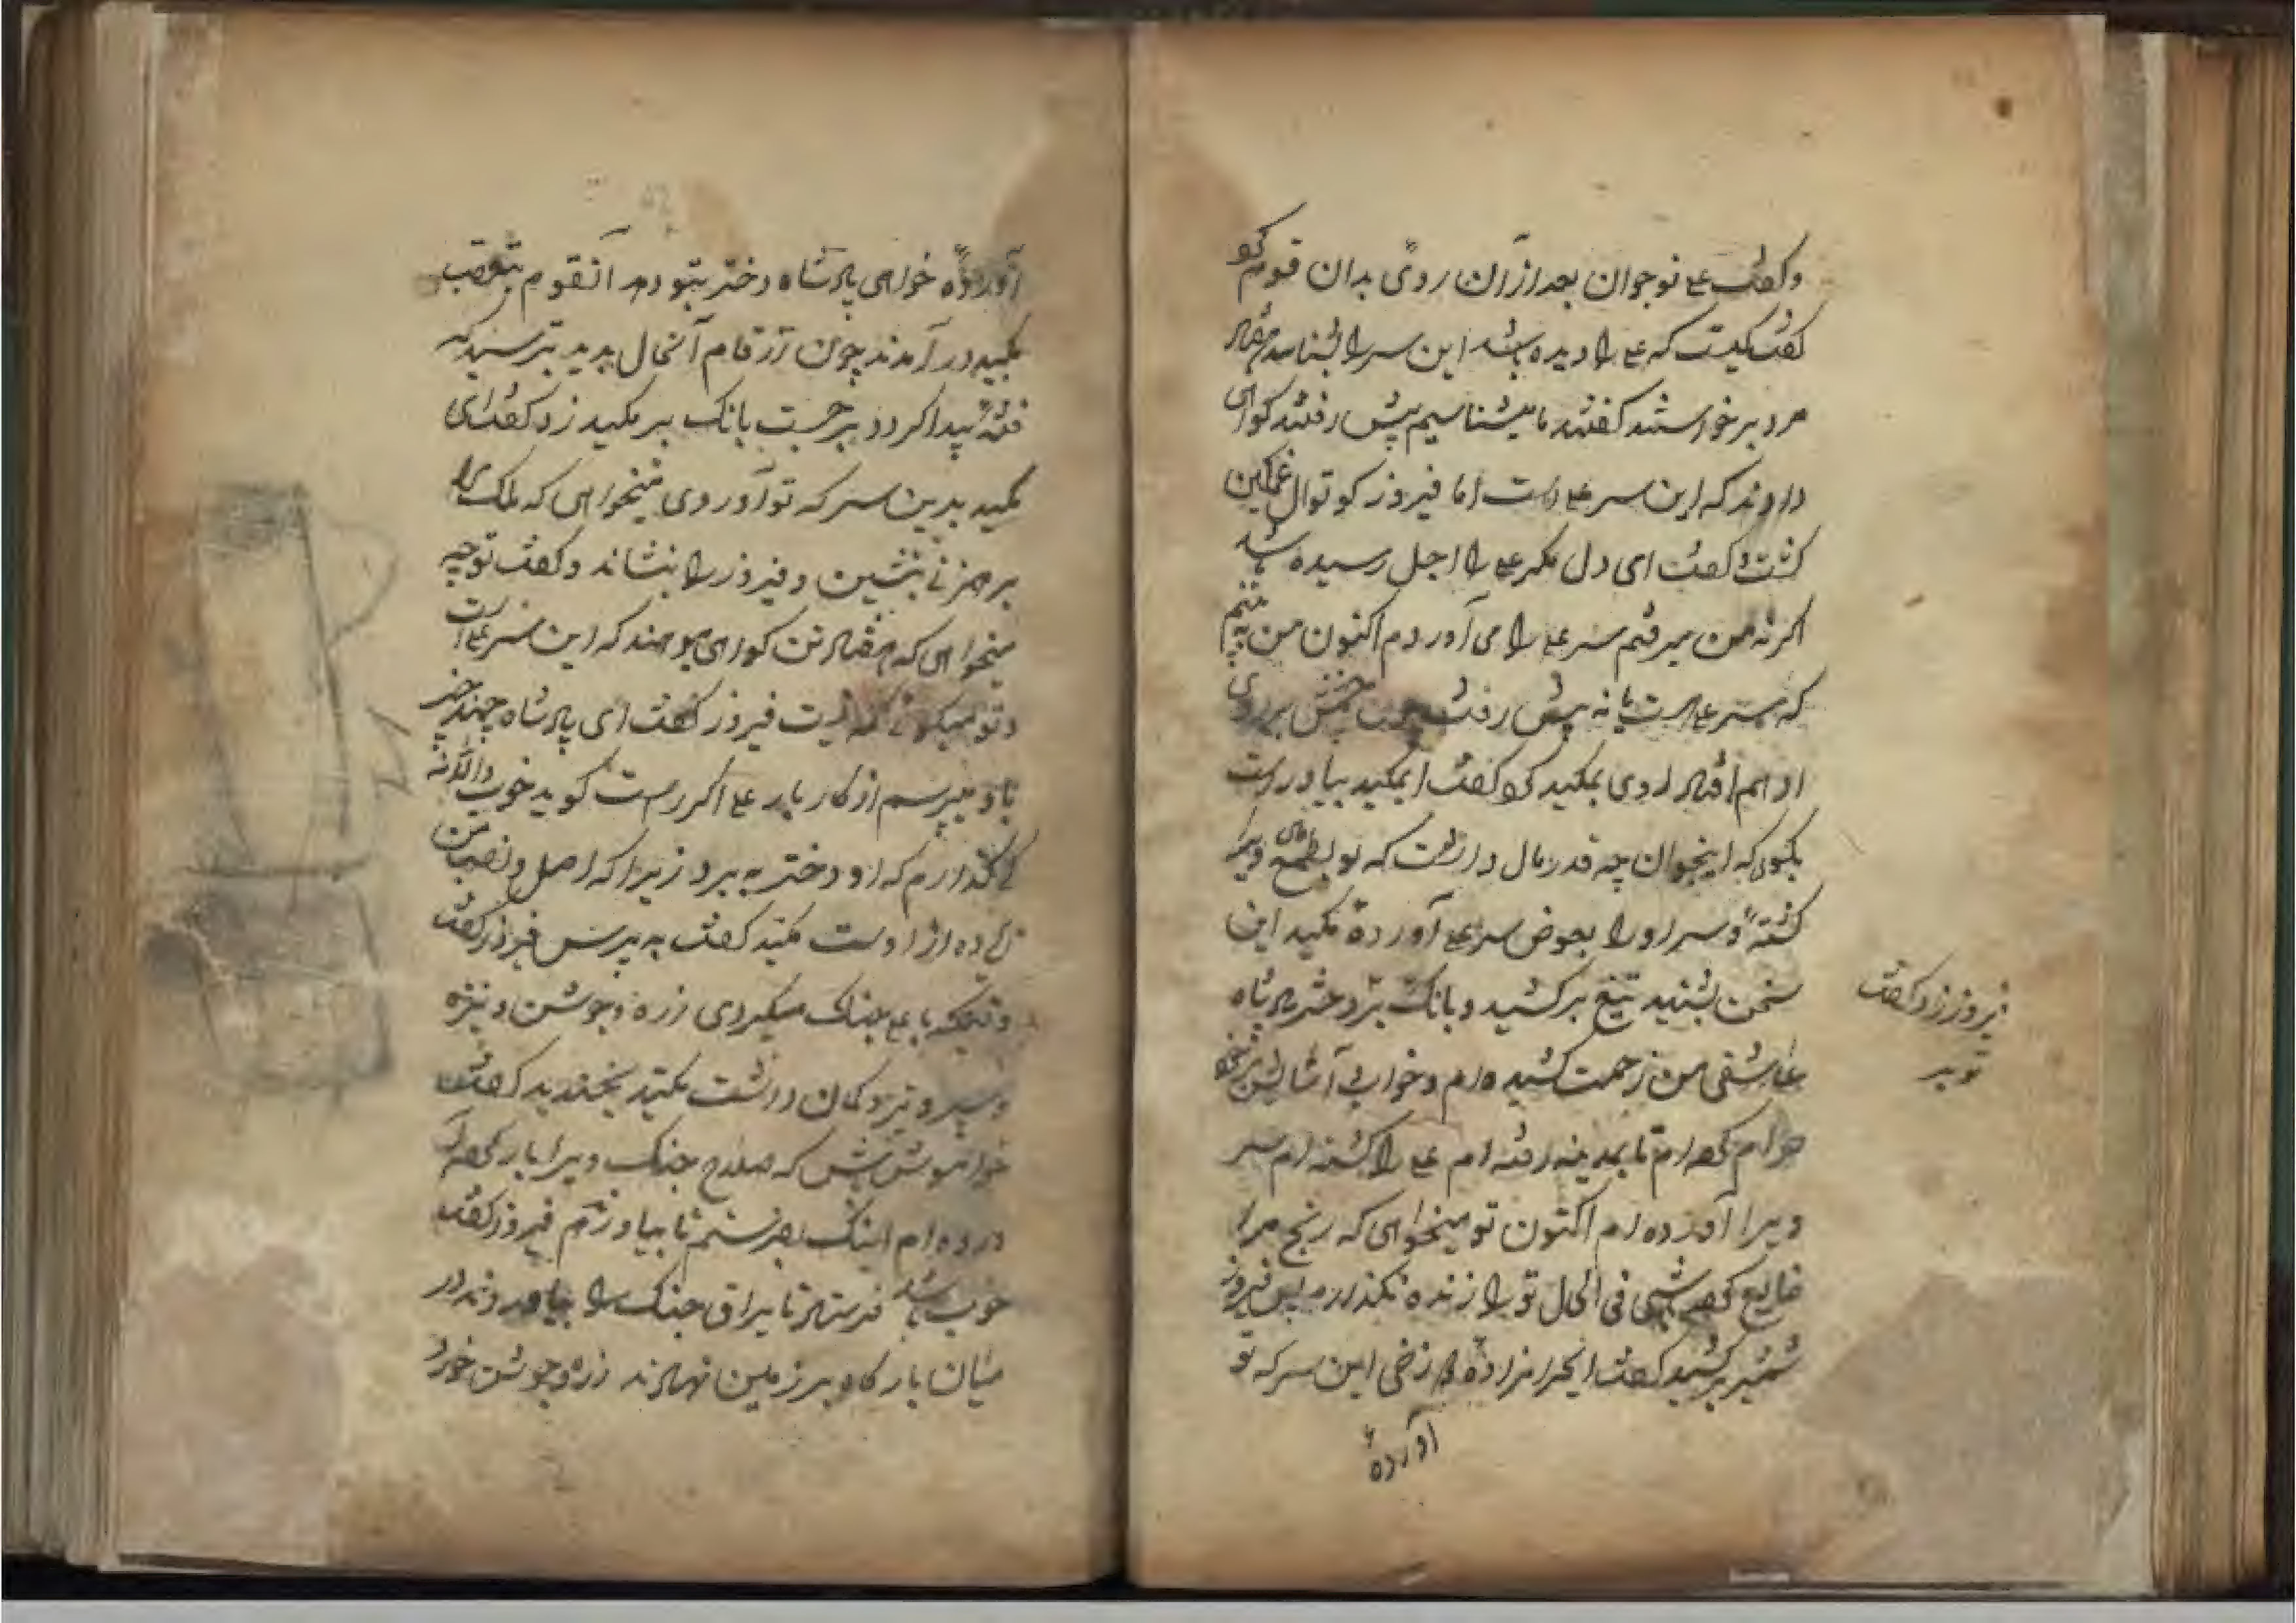 و کفت علی نوجوان بعد از آن روی بدان قوم کرد
کفت کیست که علی را دیده باشد این سر را بشناسد هفتاد
مرد برخواستند کفتند ما میشناسیم پیش رفتند کواهی
دادند که این سر علی است اما فیروز کوتوال غمکین
کشت و کفت ای دل مکر علی را اجل رسیده باشد
اکر نه من میرفتم سر علی را می آوردم اکنون من به بینم
که سر علی است یا نه پیش رفت چون چشمش بر روی
او هم افتاد روی بمکید کرد کفت ای مکید بیا و راست
بکوی که اینجوان چه قدر مال داشت که تو بطمع مال ویرا
کشتهٔ و سر او را بعوض سر علی آوردهٔ مکید این
سخن بشنید تیغ برکشید و بانک بزد
فیروز زد کفت
تو بر
عاشقی من زحمت کشیده ام و خواب آسایش بر خود
حرام کرده ام تا بمدینه رفته ام علی را کشته ام سر
ویرا آورده ام اکنون تو میخواهی که رنج مرا
ضایع کرده باشی فی الحال تو را زنده نکذارم پس فیروز
شمشیر برکشید کفت ای حرامزاده از زخی این سر که تو
آوردهٔ
آوردهٔ خواهی پادشاه دختر بتو دهد آنقوم بتعصب
مکید در آمدند چون آنحال بدید بترسید که
فتنه پیدا کردد برجست بانک بر مکید زد کفت ای
مکید بدین سر که تو آوردی میخواهی که ملک را
بر هم زنی بنشین و فیروز را بنشاند و کفت تو چه
میخواهی که هفتاد تن کواهی میدهند که این سر علی است
و تو میکوئی که نیست فیروز کفت ای پادشاه چند چیز
باو میپرسم از کار بار علی اکر راست کوید خوب و اکر نه
کی کذارم که او دختر به برد زیرا که اصل و نصب من
زیاده از اوست مکید کفت به پرس فیروز کفت
وقتیکه با علی جنک میکردی زره و جوشن و نیزه
و سپر و تیر و کمان داشت مکید بخندید کفت
خواموش باش که صلاح جنک ویرا بار کرده
آورده ام اینک بفرستم تا بیاورم فیروز کفت
خوب باشد فرستاد تا یراق جنک را بیاوردند در
میان بارکاه بر زمین نهادند زره و جوشن خود